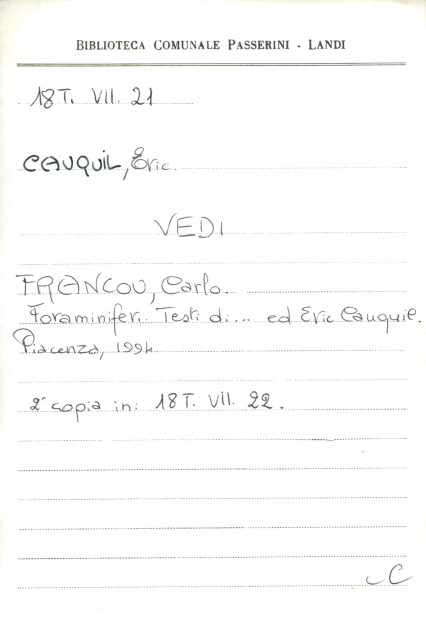 BIBLIOTECA COMUNALE PASSERINI - LANDI
18 T. VII. 21
CAUQUIL, Eric.
VEDI
FRANCOU, Carlo.
Foraminiferi. Testi di... ed Eric Cauquil.
Piacenza, 1994.
2ª copia in: 18 T. VII. 22.
C